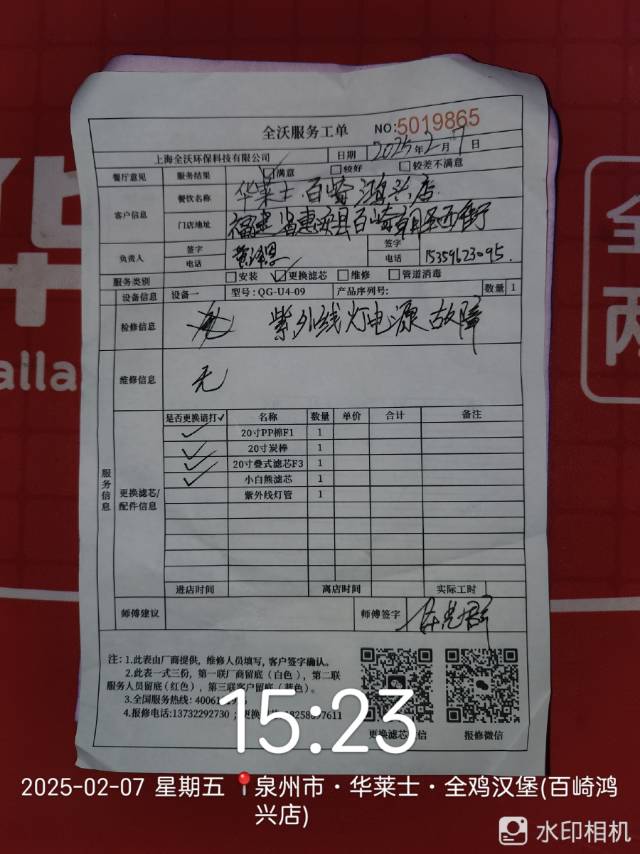 全沃服务工单
NO:5019865
上海全沃环保科技有限公司 日期 2025年2月7日
餐厅意见 服务结果 ☑满意 □较好 □较差不满意
客户信息 餐饮名称 华莱士 百崎鸿兴店
门店地址 福建省惠安县百崎
负责人 签字 签字
电话 电话 15359623095.
服务类别 □安装 ☑更换滤芯 □维修 □管道消毒
设备信息 设备一 型号：QG-U4-09 产品序列号： 数量 1
检修信息 紫外线灯电源故障
维修信息 无
服务信息
更换滤芯/配件信息
是否更换请打✓ 名称 数量 单价 合计 备注
✓ 20寸PP棉F1 1
✓ 20寸炭棒 1
✓ 20寸叠式滤芯F3 1
✓ 小白熊滤芯 1
紫外线灯管 1
进店时间 离店时间 实际工时
师傅建议 师傅签字
注：1.此表由厂商提供，维修人员填写，客户签字确认。
2.此表一式三份，第一联厂商留底（白色），第二联
服务人员留底（红色），第三联客户留底（黄色）。
3.全国服务热线：4006
4.报修电话:13732292730；更换
更换滤芯微信 报修微信
15:23
2025-02-07 星期五 泉州市·华莱士·全鸡汉堡(百崎鸿
兴店)
水印相机